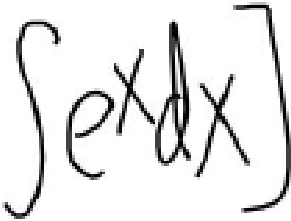 ∫e^x dx]